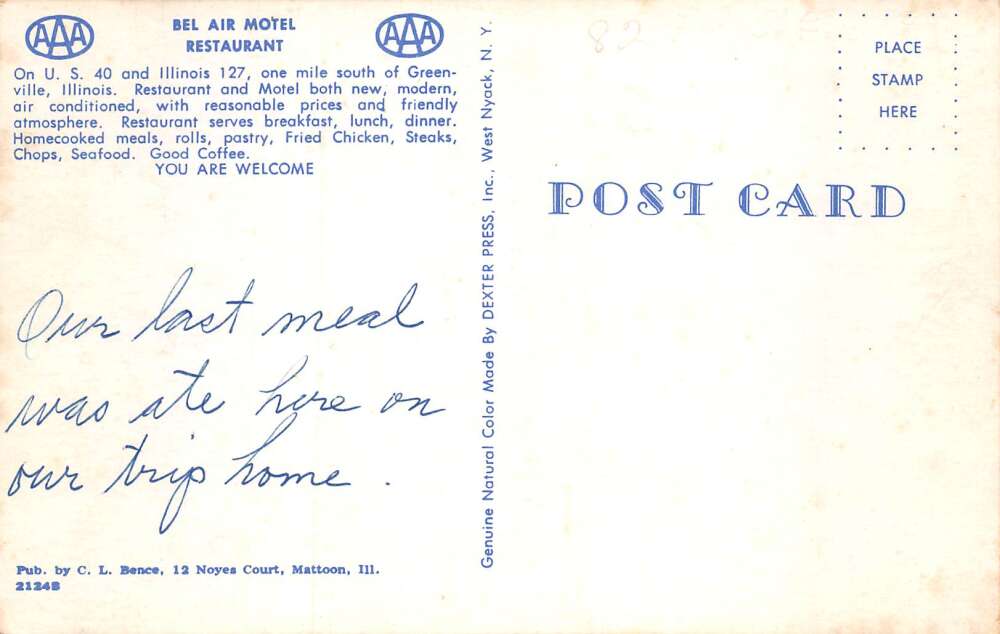 AAA
BEL AIR MOTEL
RESTAURANT
AAA
On U. S. 40 and Illinois 127, one mile south of Green-
ville, Illinois. Restaurant and Motel both new, modern,
air conditioned, with reasonable prices and friendly
atmosphere. Restaurant serves breakfast, lunch, dinner.
Homecooked meals, rolls, pastry, Fried Chicken, Steaks,
Chops, Seafood. Good Coffee.
YOU ARE WELCOME
Our last meal
was ate here on
our trip home.
Pub. by C. L. Bence, 12 Noyes Court, Mattoon, Ill.
21248
Genuine Natural Color Made By DEXTER PRESS, Inc., West Nyack, N. Y.
82
PLACE
STAMP
HERE
POST CARD